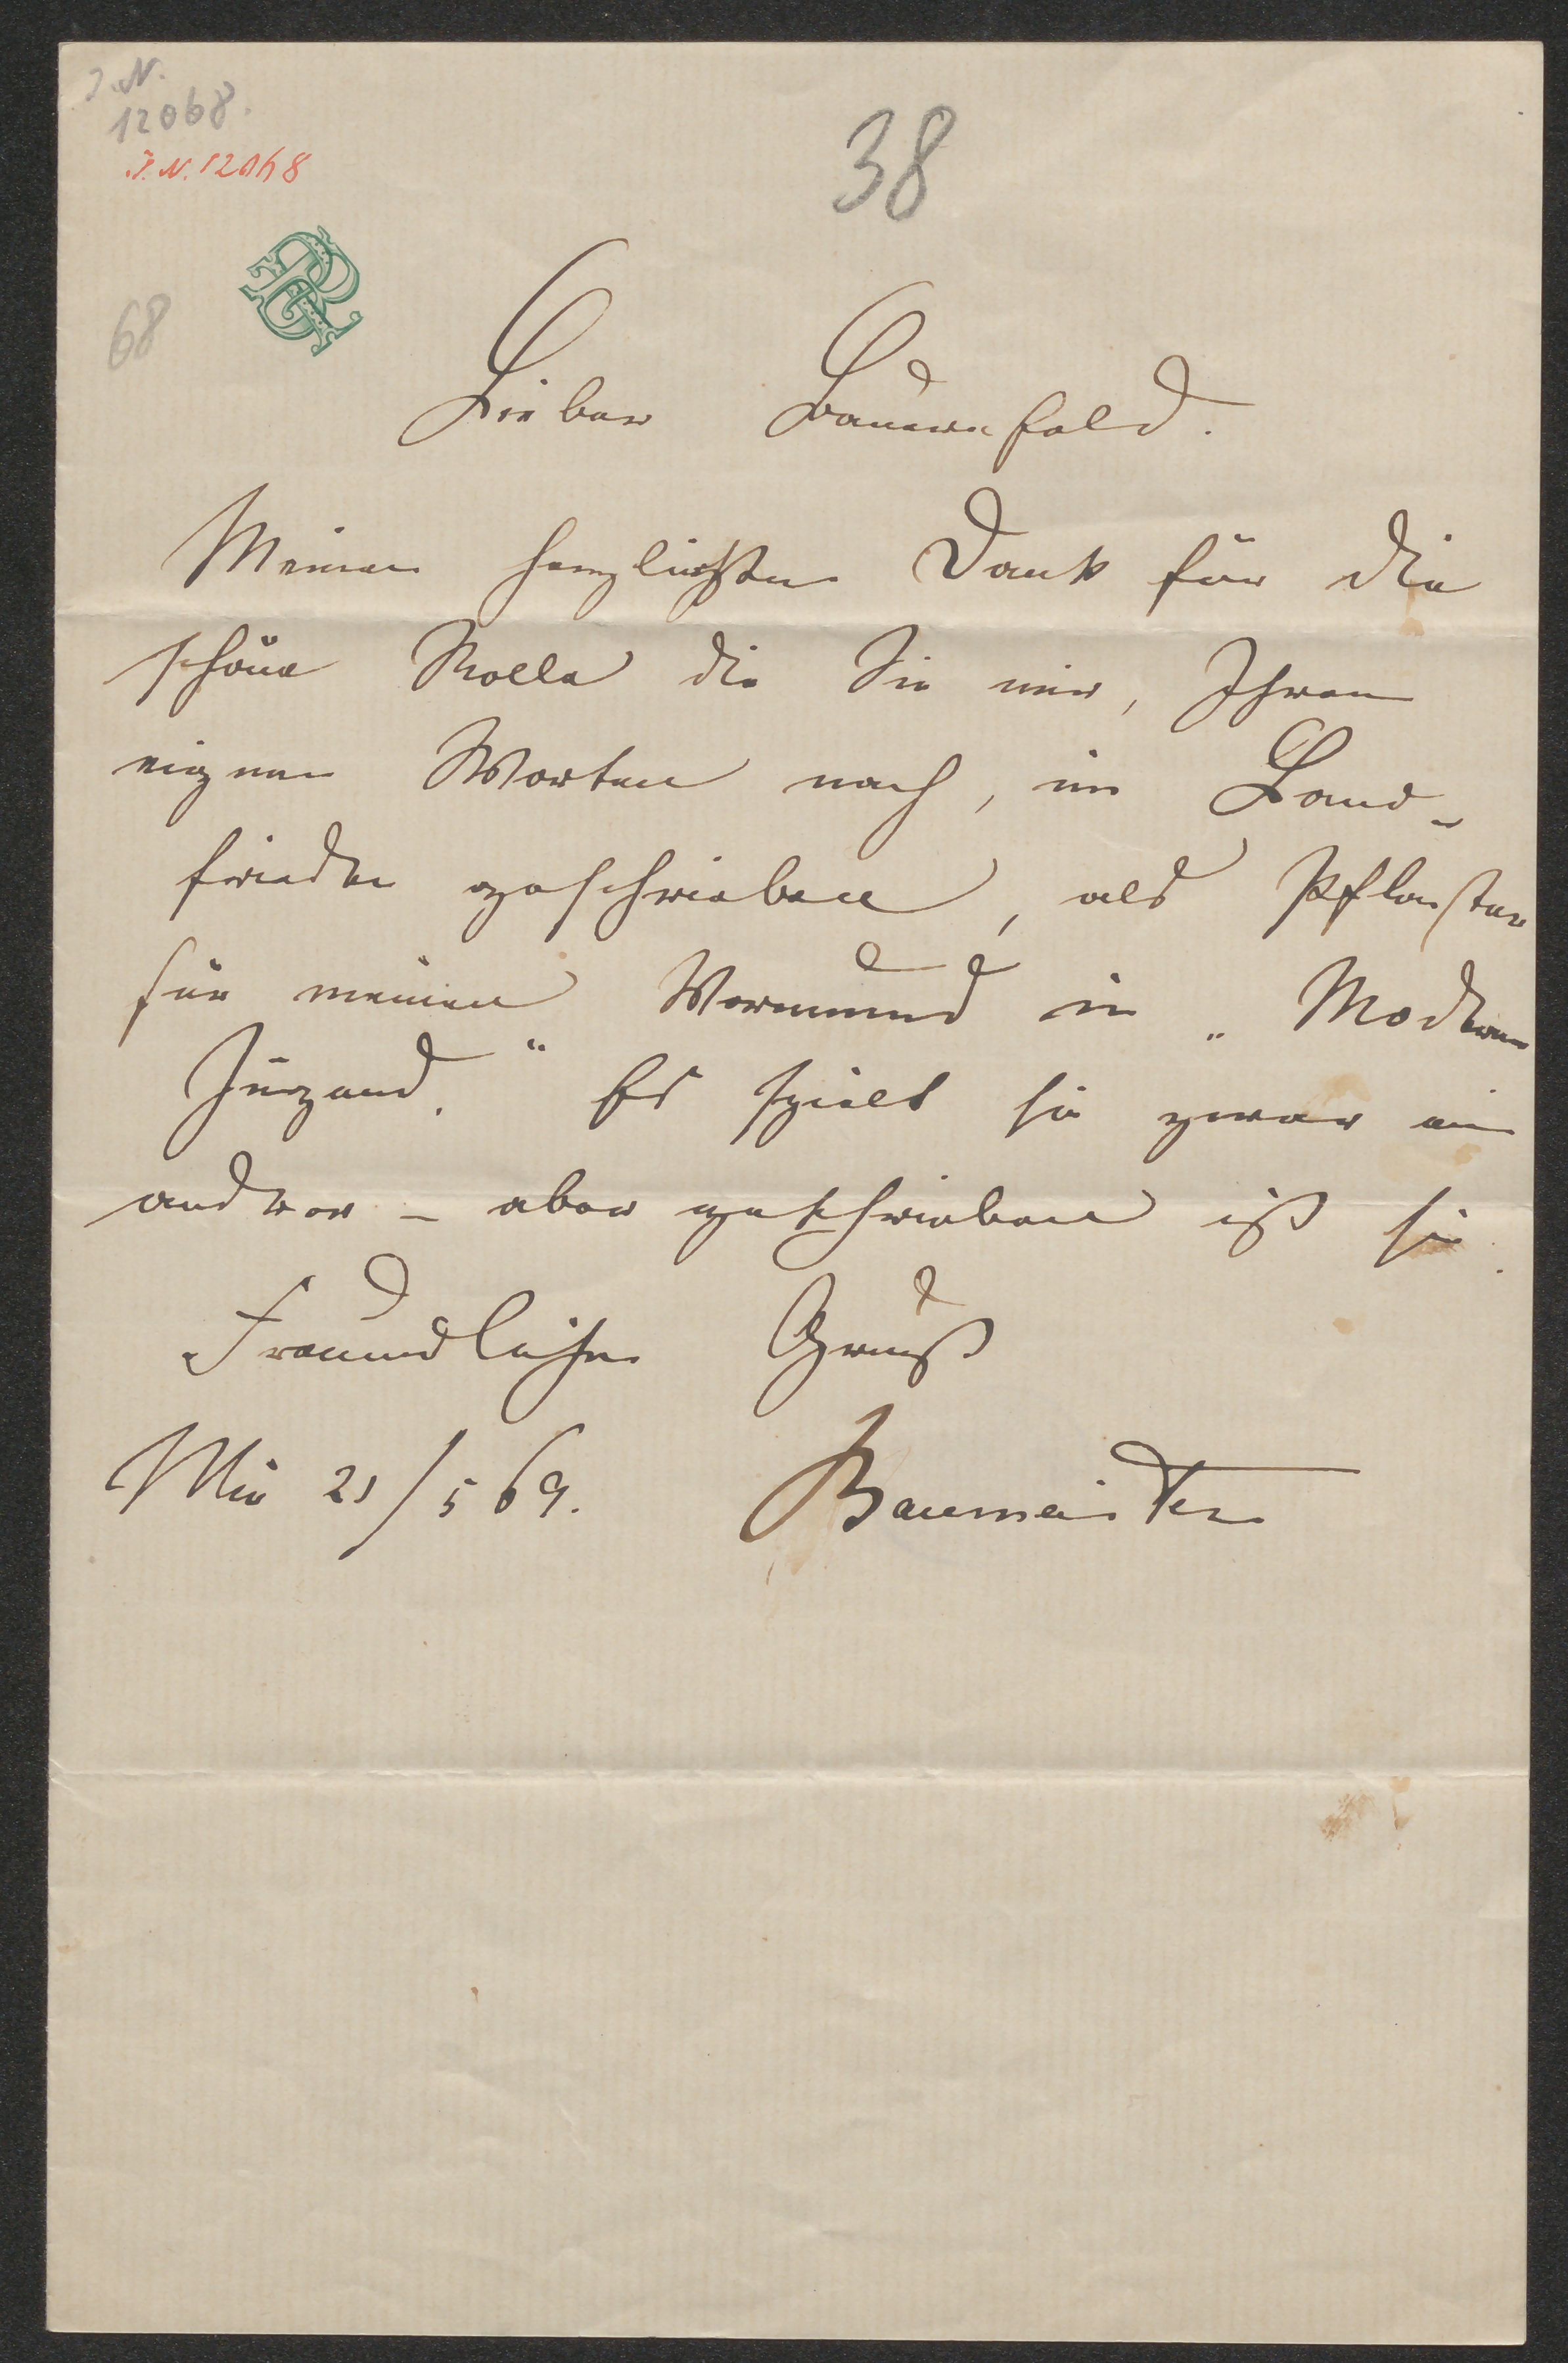 J.N.
12068.
J.N. 12068
38
68
Lieber Bauernfeld.
Meinen herzlichsten Dank für die
schöne Rolle die Sie mir, Ihren
eignen Worten nach, im Land-
frieden geschrieben, als Pflaster
für meinen Vormund in „Moderne
Jugend." Es spielt sie zwar ein
andrer – aber geschrieben ist sie.
Freundlichen Gruß
21/5 69. Baumeister